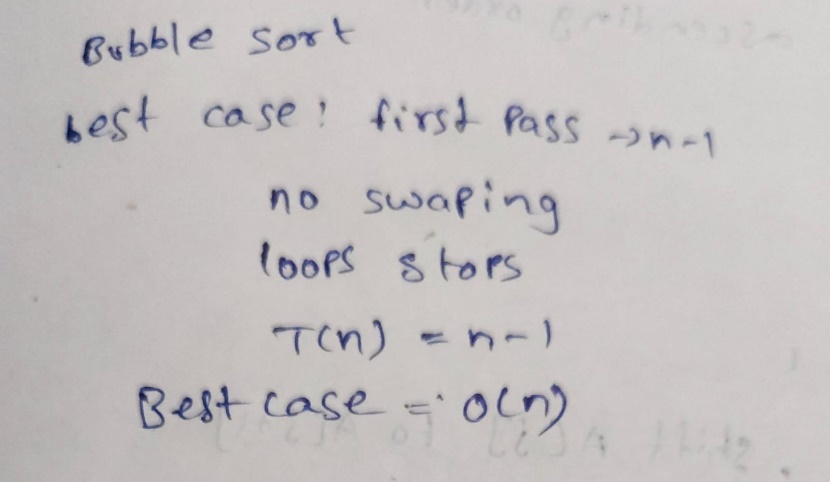 Bubble sort
best case: first Pass → n-1
no swaping
loops stops
T(n) = n-1
Best case = O(n)